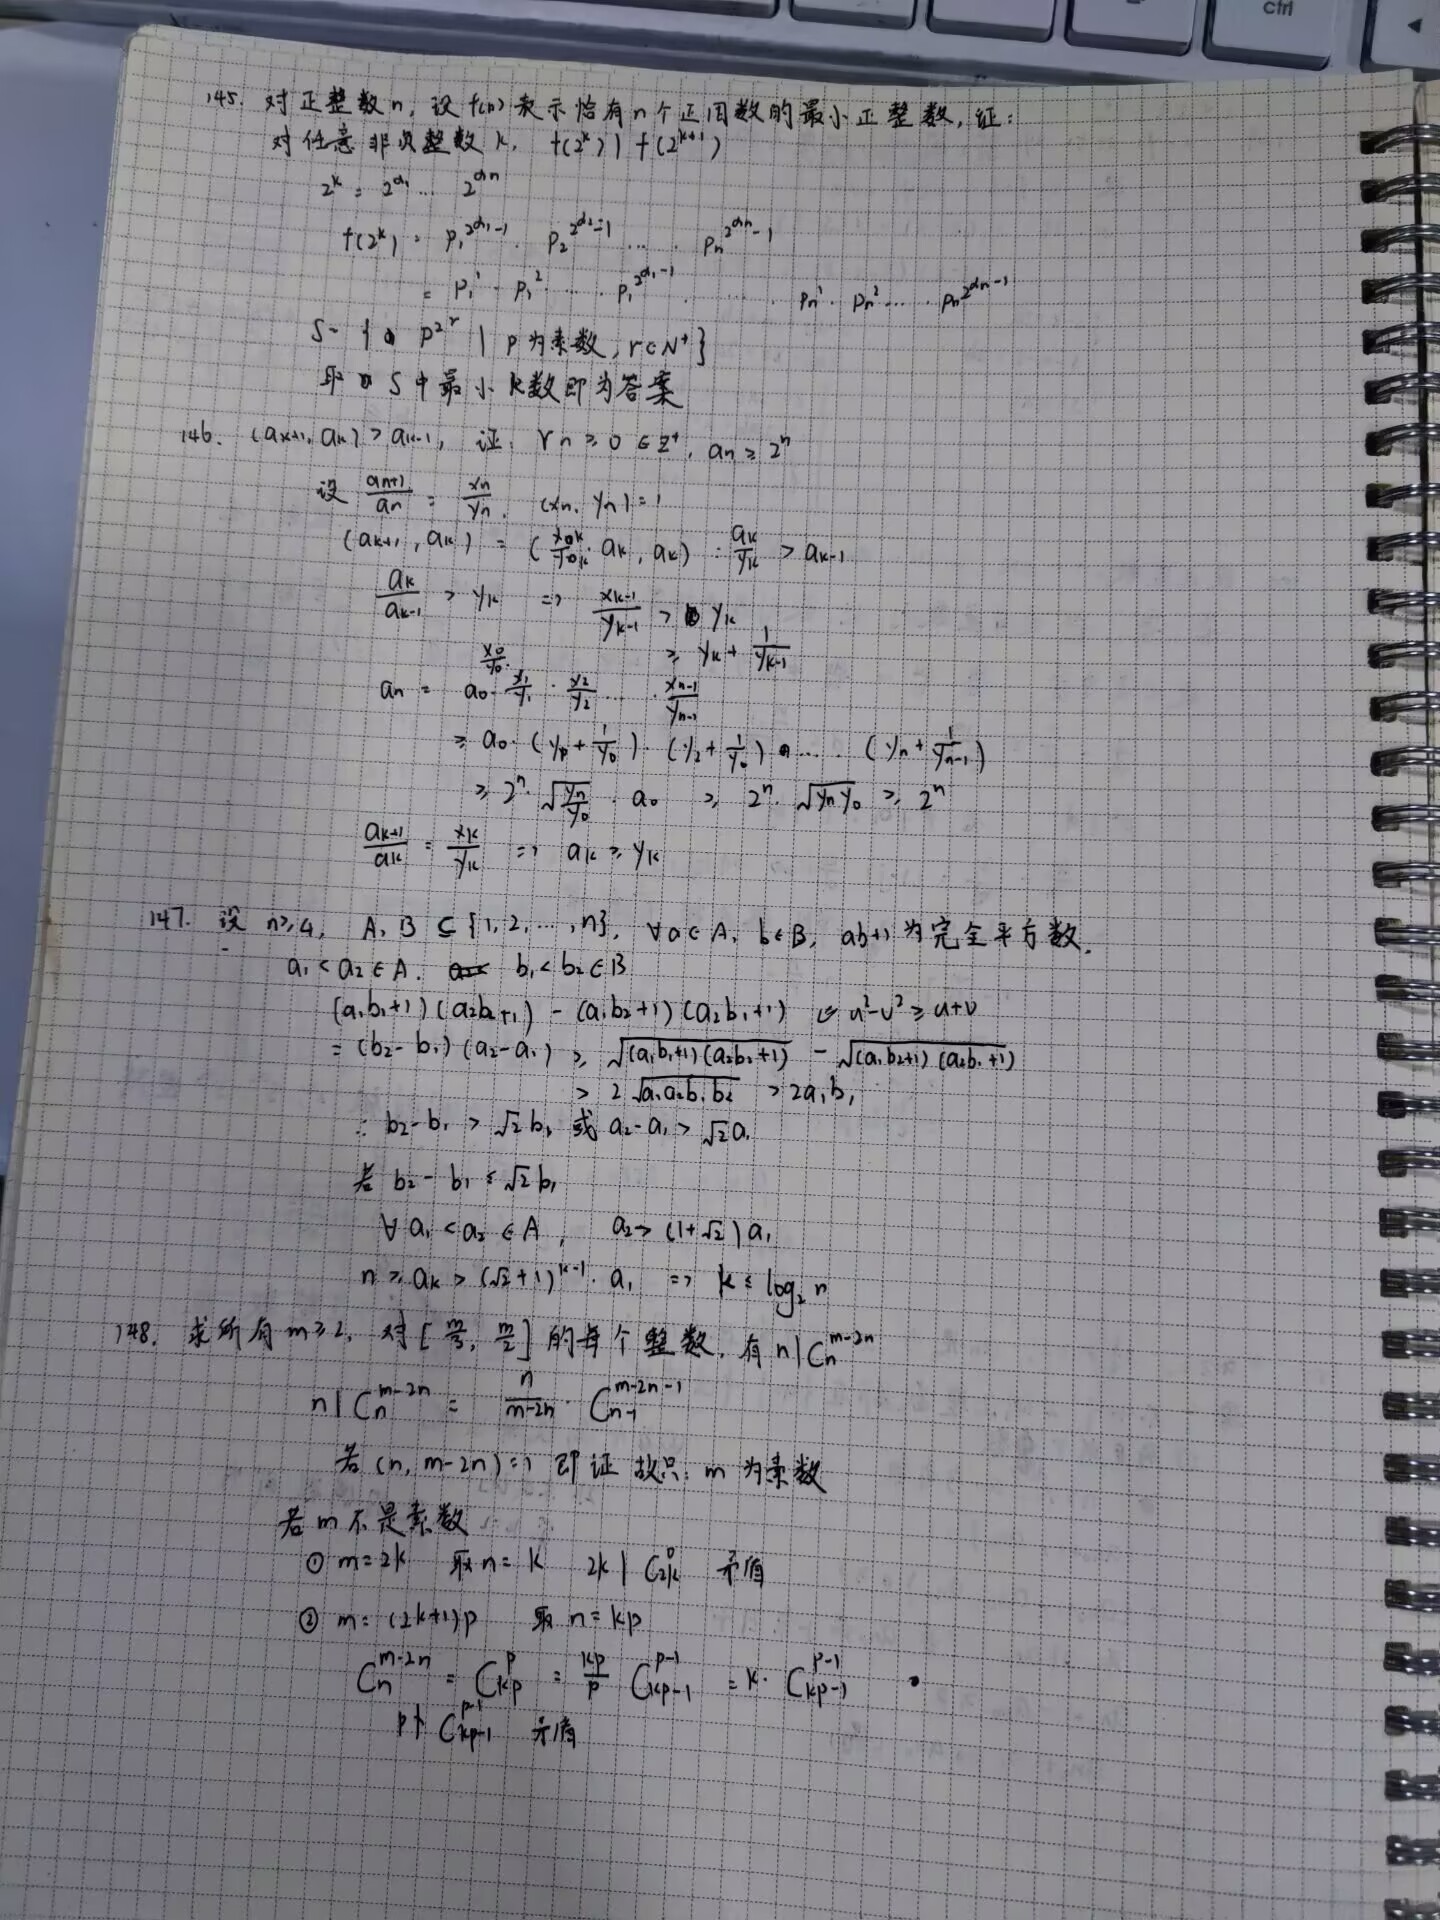 ctrl
145. 对正整数n, 设f(n)表示恰有n个正因数的最小正整数, 证:
对任意非负整数k, f(2^k) | f(2^{k+1})
2^k = 2^{α_1} ... 2^{α_n}
f(2^k) = p_1^{2^{α_1}-1} · p_2^{2^{α_2}-1} ... · p_n^{2^{α_n}-1}
= p_1^1 · p_1^2 ... · p_1^{2^{α_1-1}} ... · p_n^1 · p_n^2 ... · p_n^{2^{α_n-1}}
S = { p^{2^r} | p为素数, r∈N^+ }
取 S中最小k数即为答案
146. (a_{k+1}, a_k) > a_{k-1}, 证: ∀n ≥ 0 ∈ Z^+, a_n ≥ 2^n
设 \frac{a_{n+1}}{a_n} = \frac{x_n}{y_n}, (x_n, y_n) = 1
(a_{k+1}, a_k) = (\frac{x_k}{y_k} · a_k, a_k) = \frac{a_k}{y_k} > a_{k-1}
\frac{a_k}{a_{k-1}} > y_k => \frac{x_{k-1}}{y_{k-1}} > y_k
≥ y_k + \frac{1}{y_{k-1}}
a_n = a_0 · \frac{x_0}{y_0} · \frac{x_1}{y_1} · \frac{x_2}{y_2} ... · \frac{x_{n-1}}{y_{n-1}}
≥ a_0 · (y_1 + \frac{1}{y_0}) · (y_2 + \frac{1}{y_1}) · ... (y_n + \frac{1}{y_{n-1}})
≥ 2^n · \sqrt{\frac{y_n}{y_0}} · a_0 ≥ 2^n · \sqrt{y_n y_0} ≥ 2^n
\frac{a_{k+1}}{a_k} = \frac{x_k}{y_k} => a_k ≥ y_k
147. 设 n≥4, A, B ⊆ {1, 2, ..., n}, ∀a∈A, b∈B, ab+1为完全平方数.
a_1 < a_2 ∈ A. b_1 < b_2 ∈ B
(a_1b_1+1)(a_2b_2+1) - (a_1b_2+1)(a_2b_1+1) ⇐ u²-v² ≥ u+v
= (b_2-b_1)(a_2-a_1) ≥ \sqrt{(a_1b_1+1)(a_2b_2+1)} - \sqrt{(a_1b_2+1)(a_2b_1+1)}
> 2\sqrt{a_1a_2b_1b_2} > 2a_1b_1
∴ b_2-b_1 > √2 b_1 或 a_2-a_1 > √2 a_1
若 b_2-b_1 ≤ √2 b_1
∀ a_1 < a_2 ∈ A, a_2 > (1+√2) a_1
n ≥ a_k > (√2+1)^{k-1} · a_1 => k ≤ log_2 n
148. 求所有m≥2, 对[\frac{m}{3}, \frac{m}{2}]的每个整数, 有 n | C_n^{m-2n}
n | C_n^{m-2n} = \frac{n}{m-2n} · C_{n-1}^{m-2n-1}
若 (n, m-2n) = 1 即证 故只: m为素数
若m不是素数
① m=2k 取n=k 2k | C_{2k}^0 矛盾
② m=(2k+1)p 取n=kp
C_n^{m-2n} = C_{kp}^p = \frac{kp}{p} C_{kp-1}^{p-1} = k · C_{kp-1}^{p-1}
p ∤ C_{kp-1}^{p-1} 矛盾